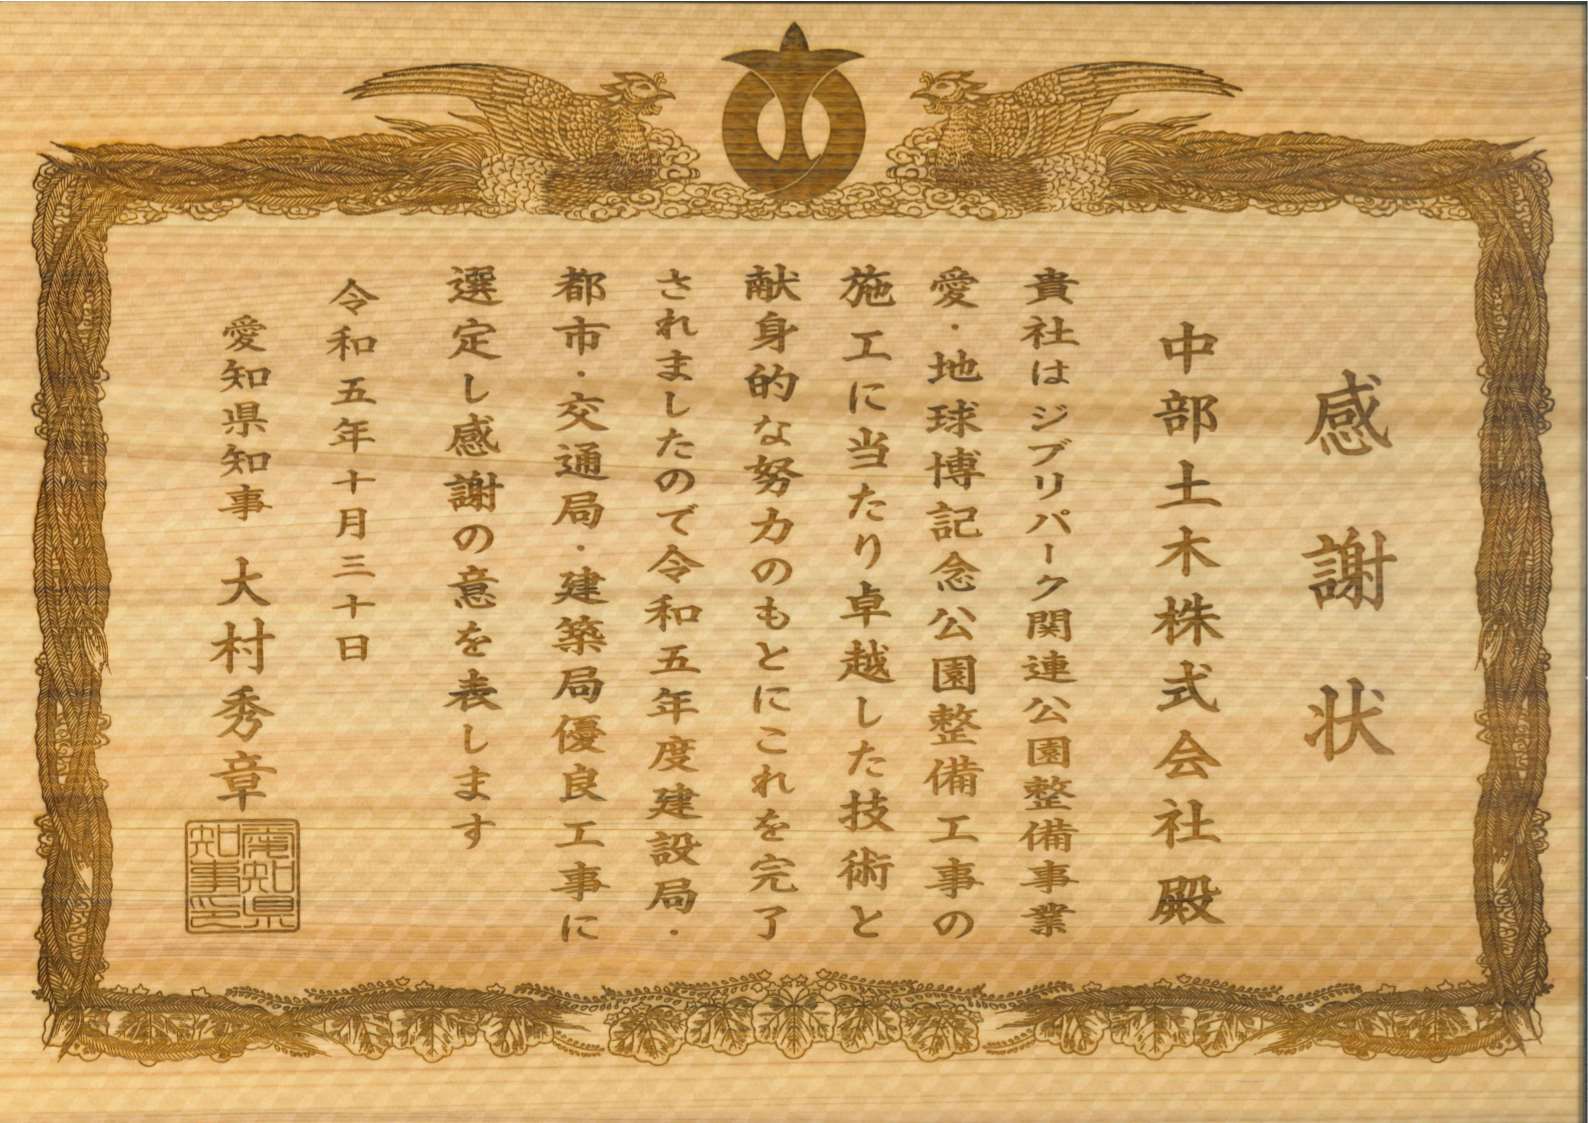 感謝状
中部土木株式会社殿
貴社はジブリパーク関連公園整備事業
愛・地球博記念公園整備工事の
施工に当たり卓越した技術と
献身的な努力のもとにこれを完了
されましたので令和五年度建設局・
都市・交通局・建築局優良工事に
選定し感謝の意を表します
令和五年十月三十日
愛知県知事 大村秀章
愛知県
知事印